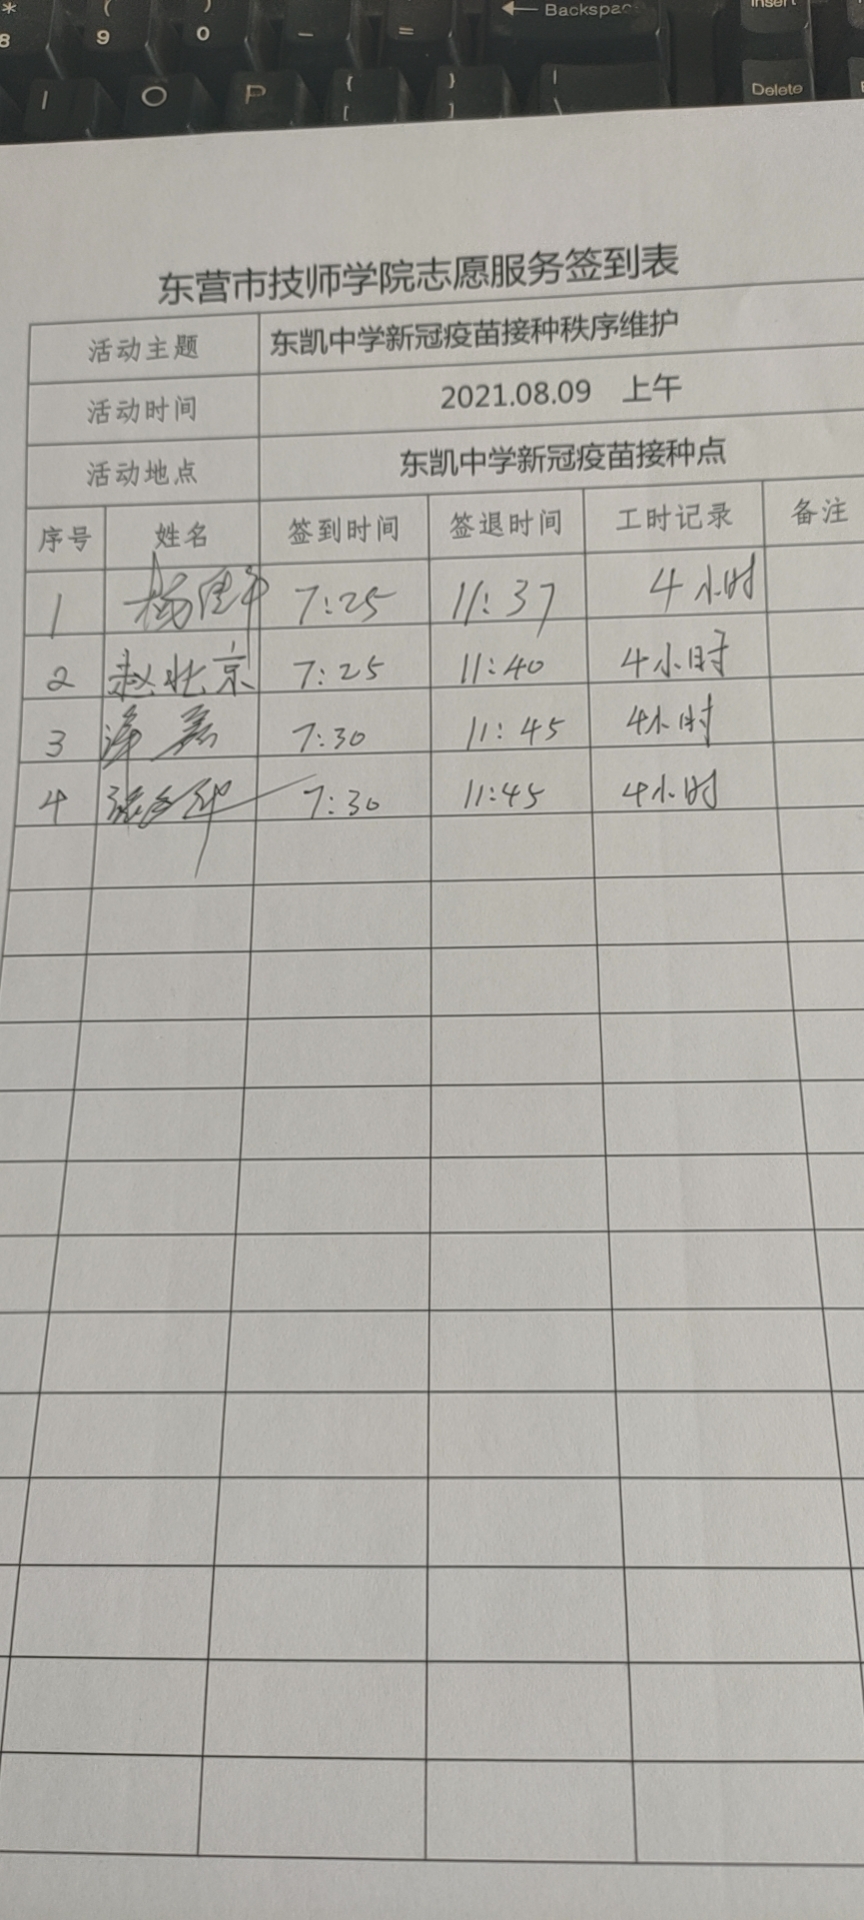 * ( )
8 9 0 - = ← Backspac Insert
I O P { [ } ] | \ Delete
东营市技师学院志愿服务签到表
活动主题 东凯中学新冠疫苗接种秩序维护
活动时间 2021.08.09 上午
活动地点 东凯中学新冠疫苗接种点
序号 姓名 签到时间 签退时间 工时记录 备注
1 7:25 11:37 4小时
2 赵北京 7:25 11:40 4小时
3 7:30 11:45 4小时
4 7:30 11:45 4小时